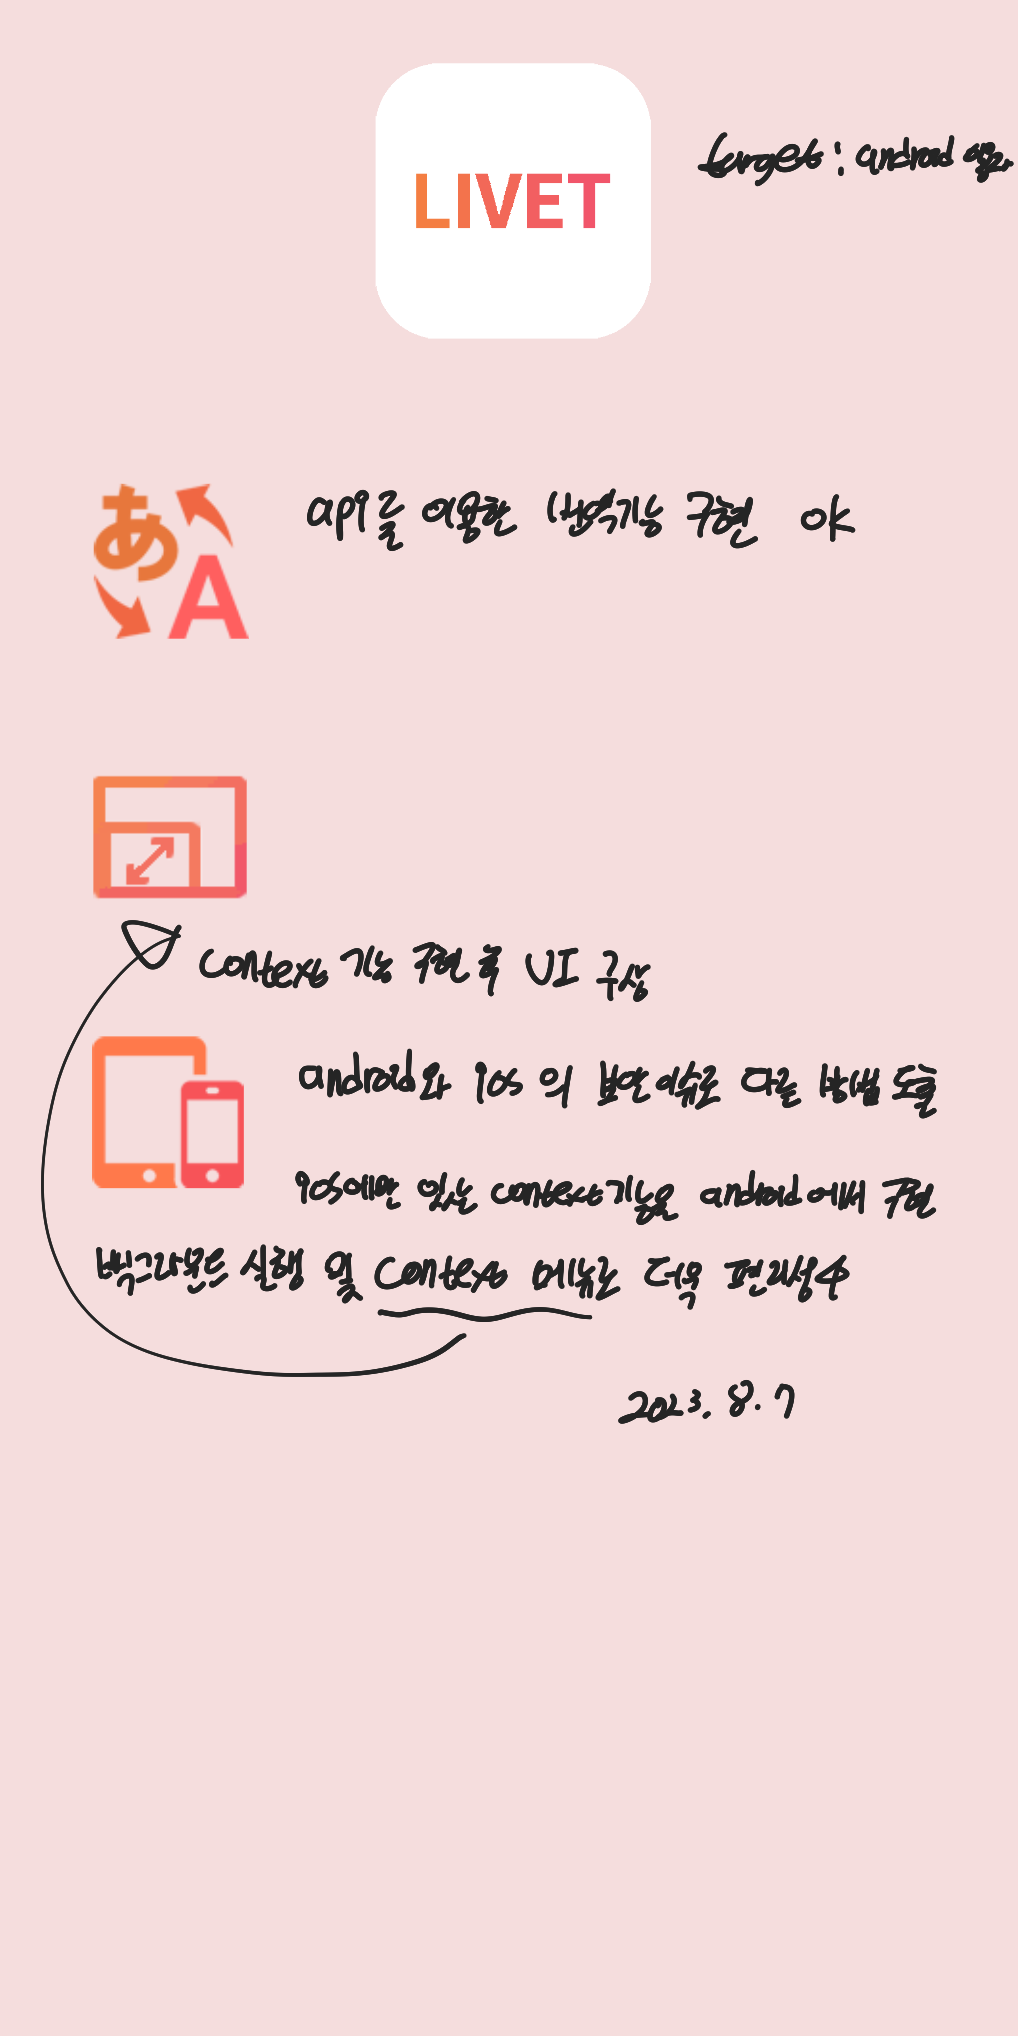 LIVET
target : android
api를 이용한 번역기능 구현 ok
あ
A
context 기능 구현 후 UI 구상
android와 ios 의 보안 이슈로 다른 방법 도출
ios에만 있는 context기능을 android에서 구현
백그라운드 실행 및 context 메뉴로 더욱
2023. 8. 7